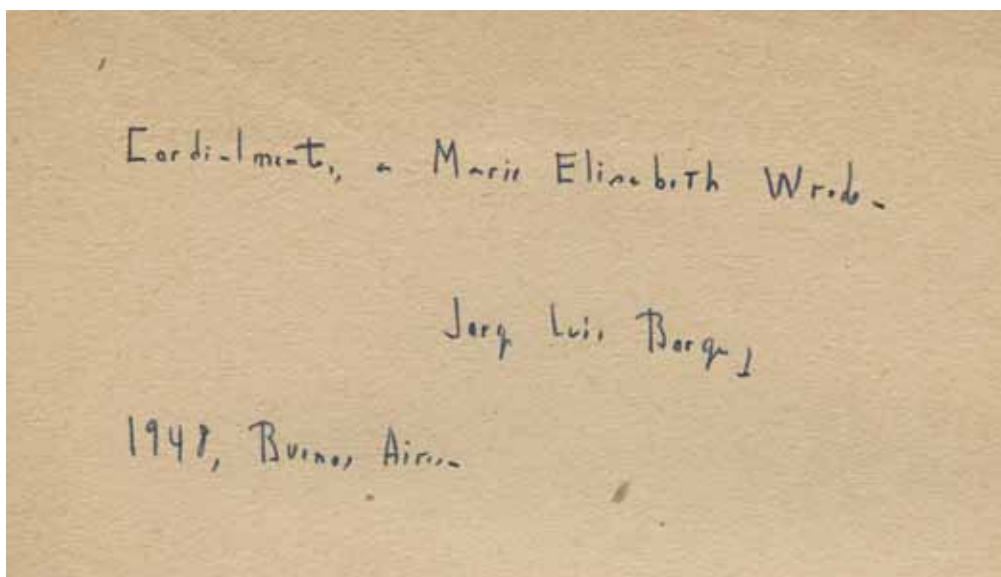 Cordialmente, a Marie Elisabeth Wrede.
Jorge Luis Borges
1948, Buenos Aires.